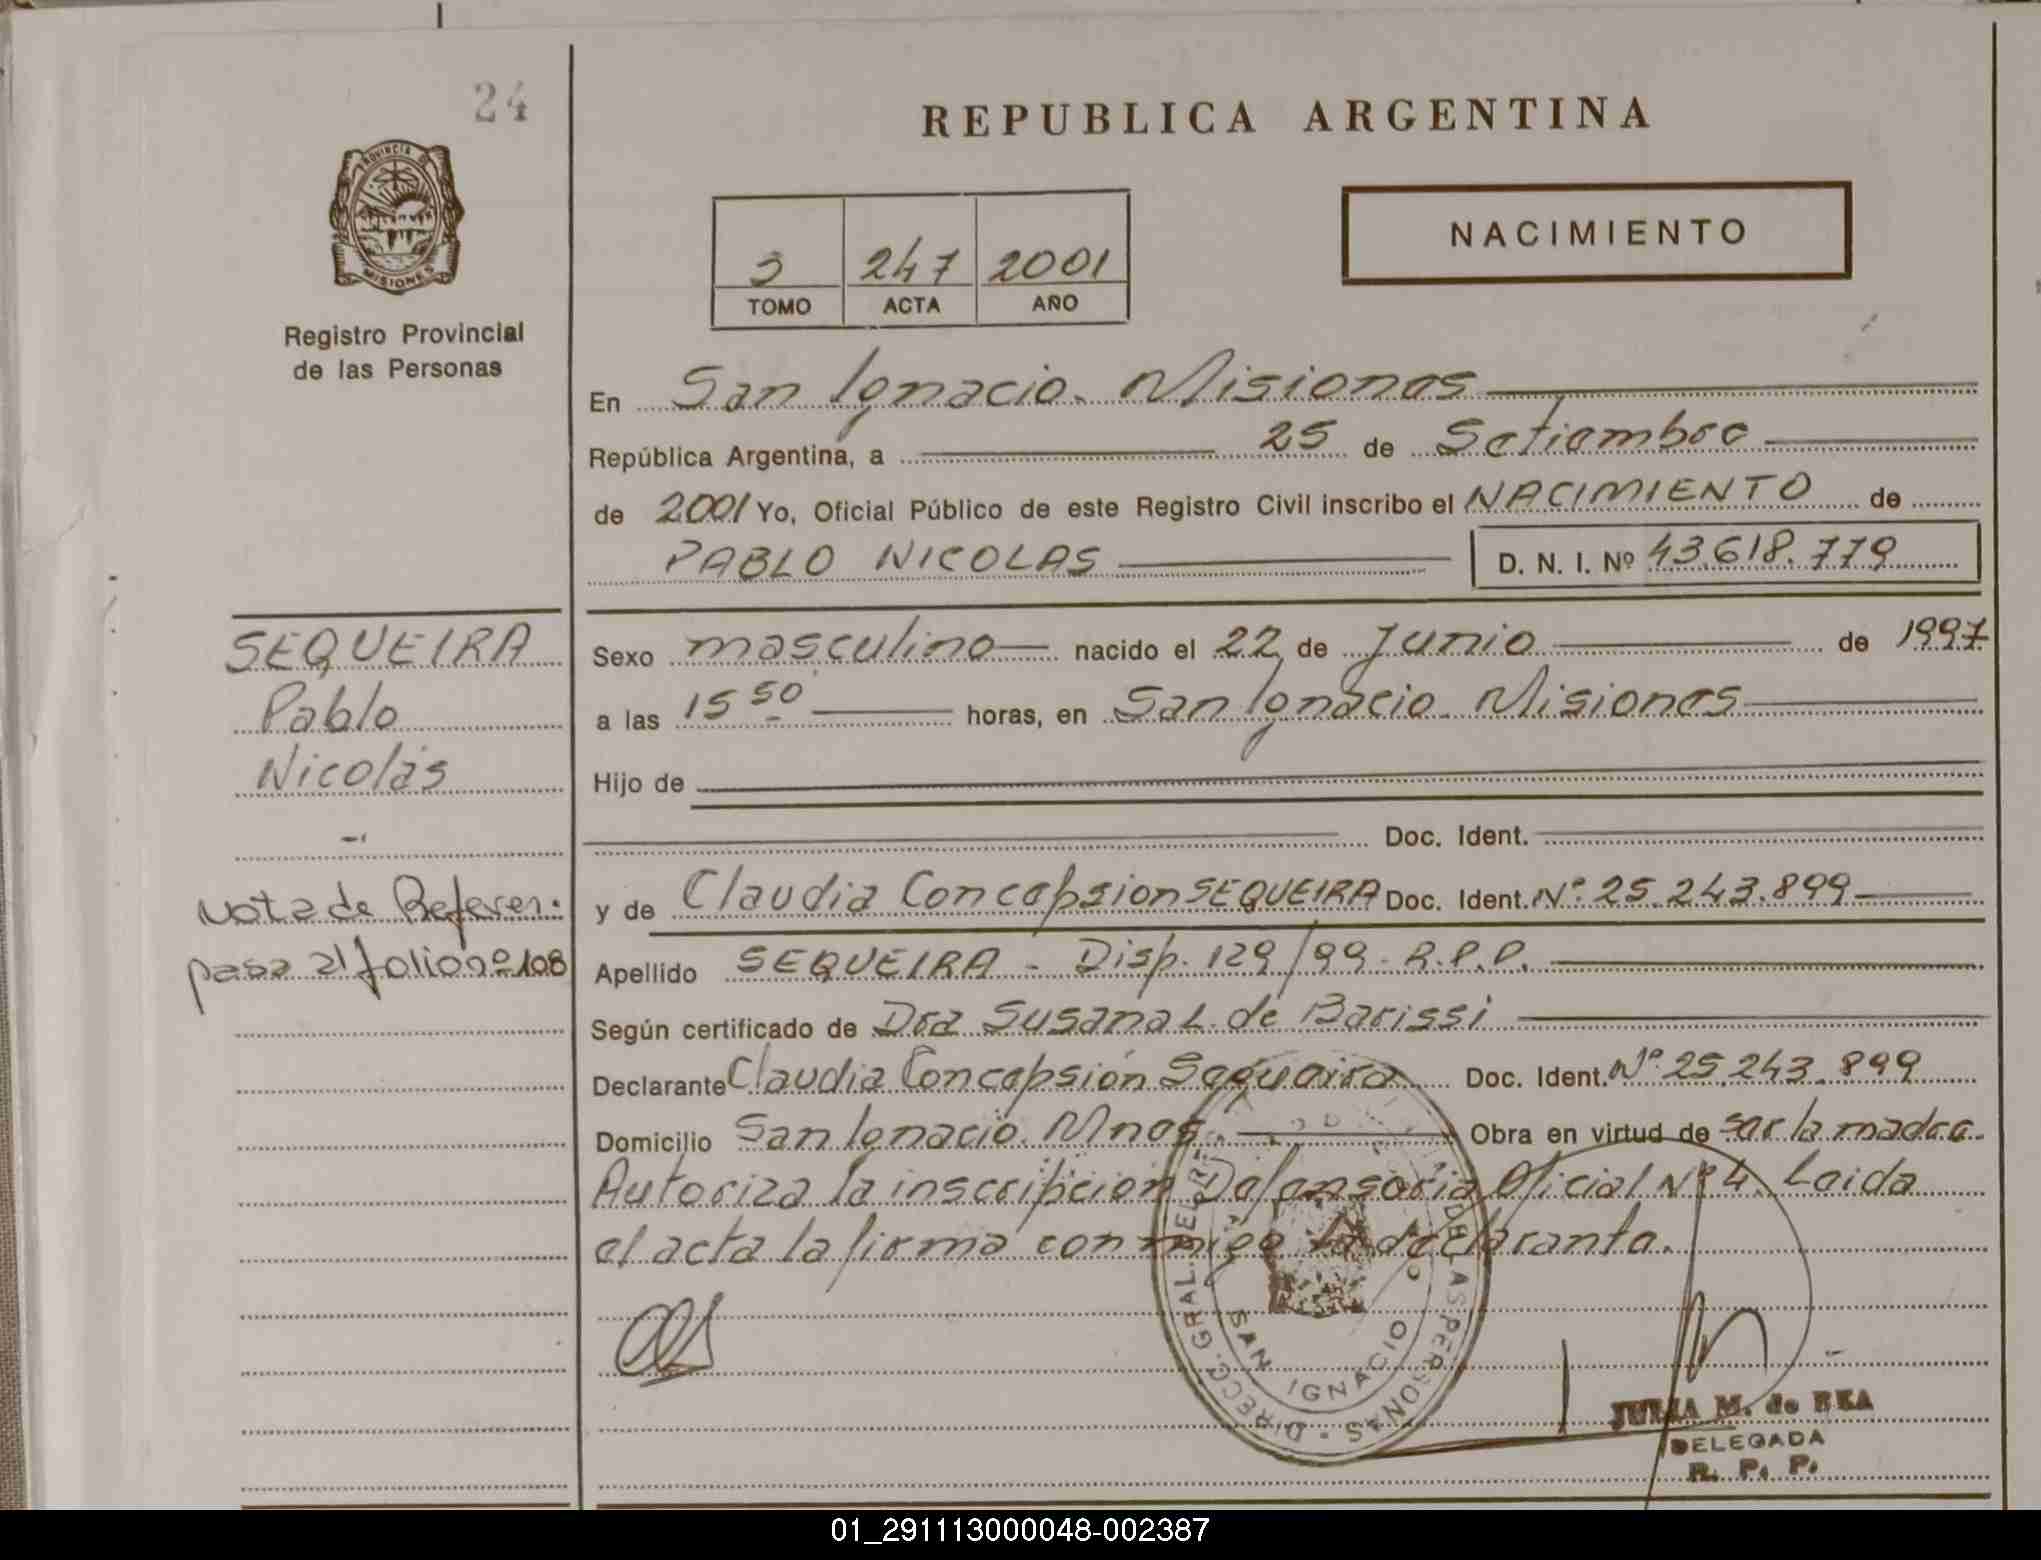 24
REPUBLICA ARGENTINA
PROVINCIA DE
MISIONES
Registro Provincial
de las Personas
3 247 2001
TOMO ACTA AÑO
NACIMIENTO
En San Ignacio. Misiones
República Argentina, a 25 de Setiembre
de 2001 Yo, Oficial Público de este Registro Civil inscribo el NACIMIENTO de
PABLO NICOLAS D. N. I. Nº 43.618.779
SEQUEIRA
Pablo
Nicolás
Nota de Referen.
pasa al folio nº 108
Sexo masculino nacido el 22 de Junio de 1997
a las 15 50 horas, en San Ignacio. Misiones
Hijo de
Doc. Ident.
y de Claudia Concepsion SEQUEIRA Doc. Ident. Nº. 25.243.899
Apellido SEQUEIRA - Disp. 129/99. R.P.P.
Según certificado de Dra Susana L. de Barissi
Declarante Claudia Concepsión Sequeira Doc. Ident. Nº. 25.243.899
Domicilio San Ignacio. Mnes. Obra en virtud de ser la madre.
Autoriza la inscripcion Defensoria Oficial Nº 4. Leida
el acta la firma conmigo la declarante.
DIRECC. GRAL. DE LAS PERSONAS
SAN IGNACIO
JULIA M. de REA
DELEGADA
R. P. P.
01_291113000048-002387